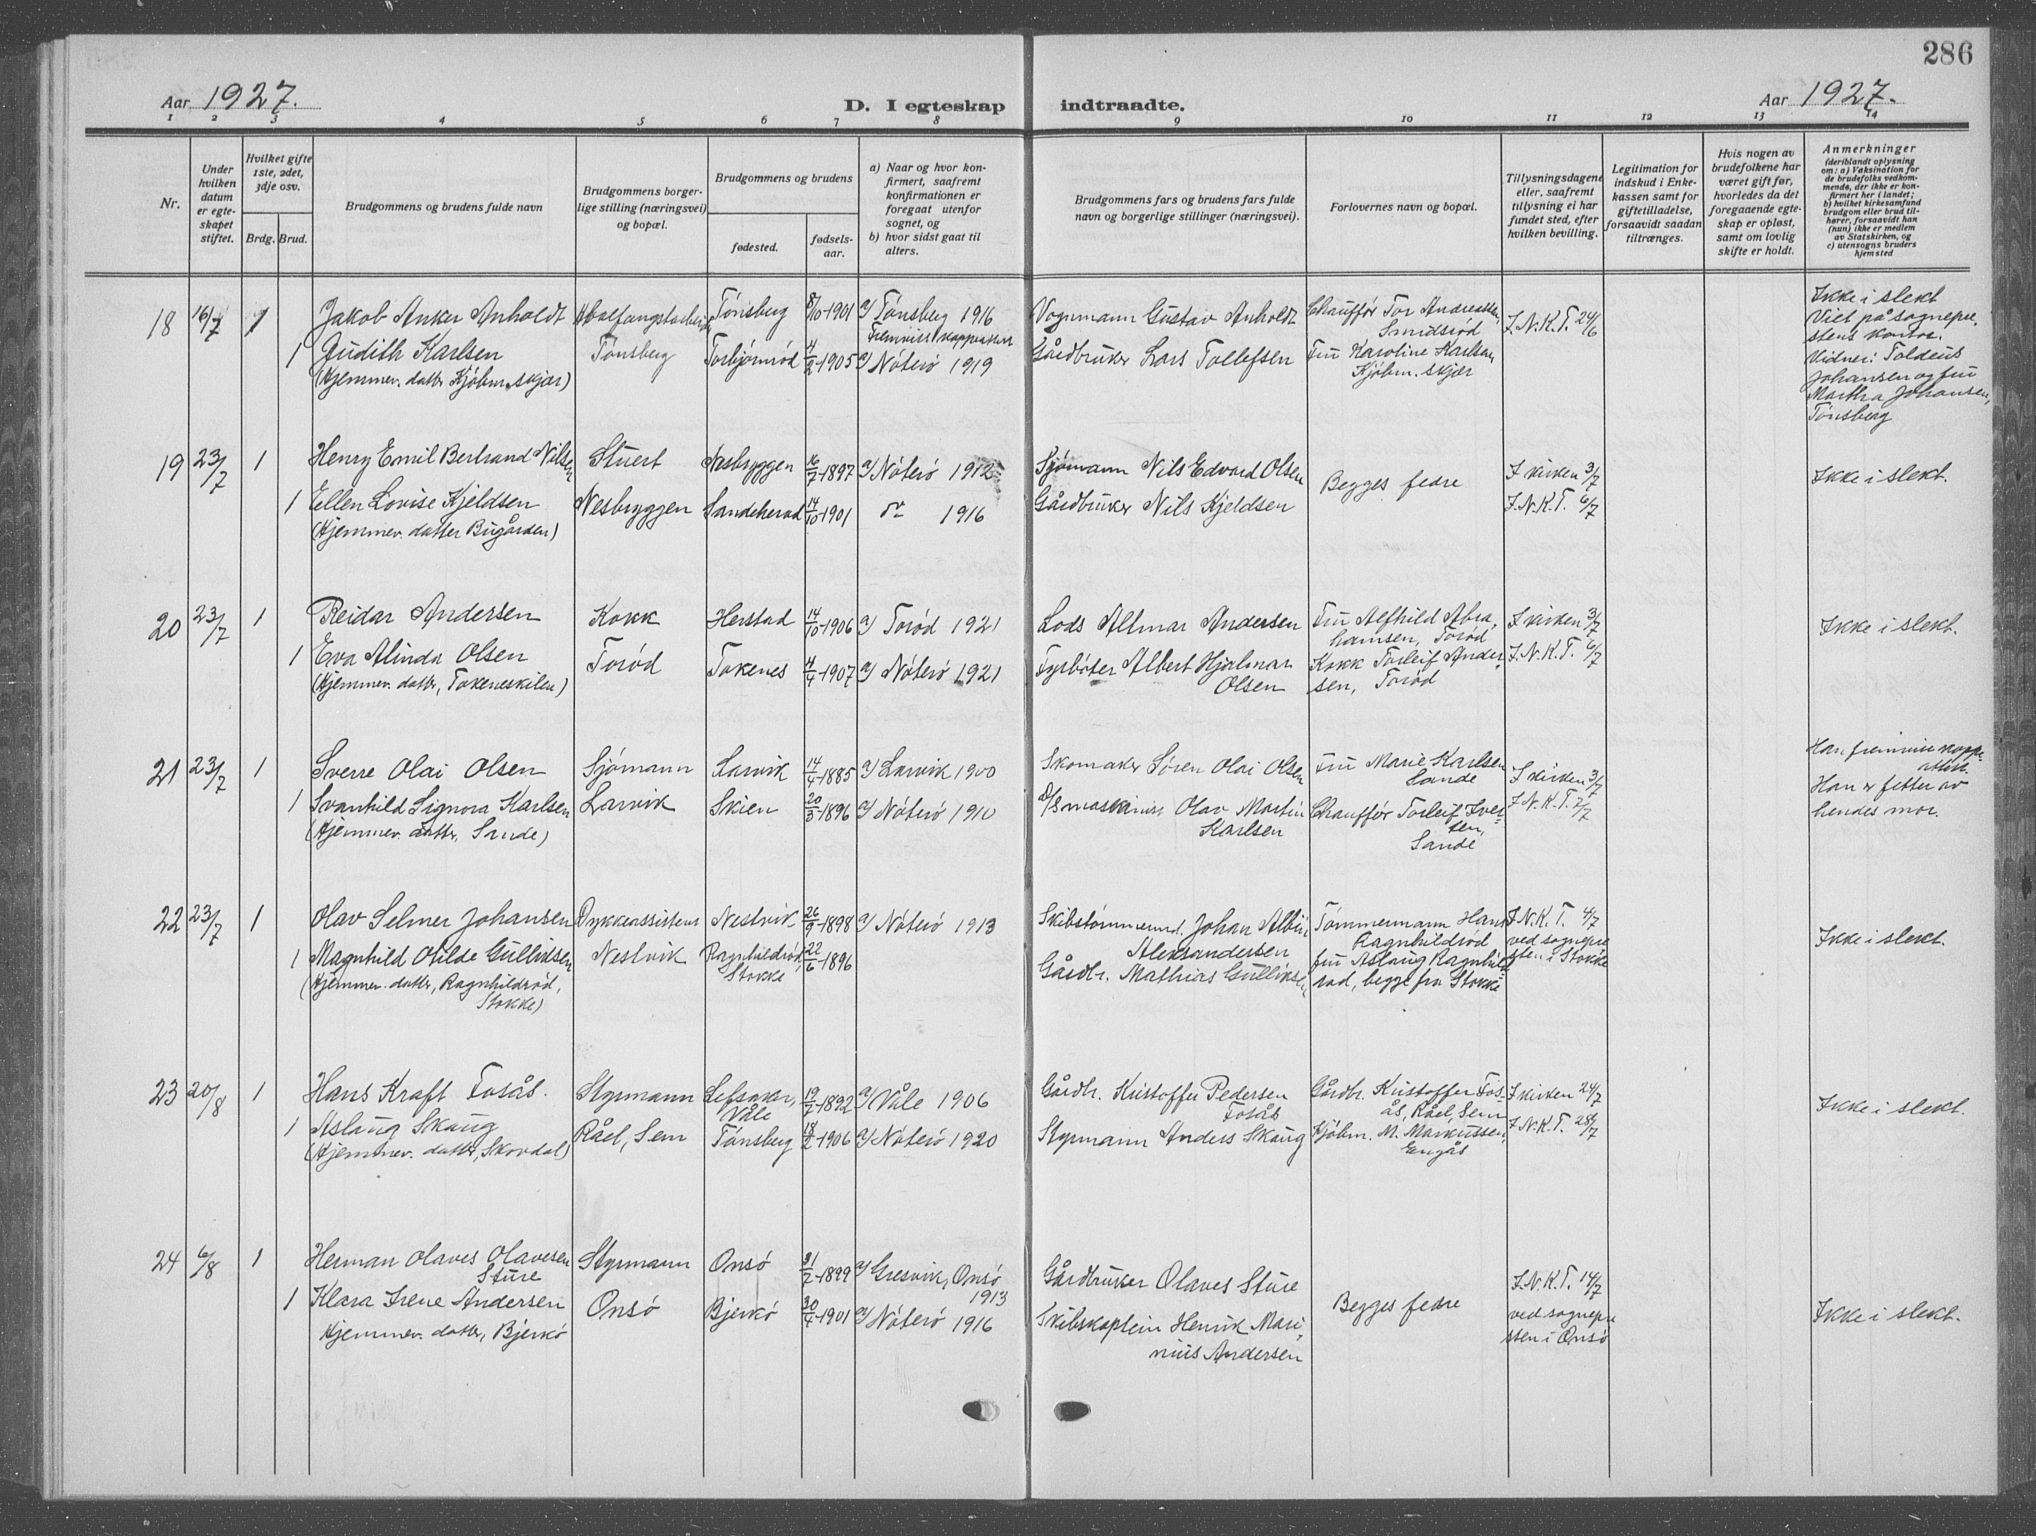 286
Aar 1927. D. I egteskap indtraadte. Aar 1927.
1 2 3 4 5 6 7 8 9 10 11 12 13 14
Nr.
Under hvilken datum er egteskapet stiftet.
Hvilket gifte 1ste, 2det, 3dje osv.
Brdg. Brud.
Brudgommens og brudens fulde navn
Brudgommens borgerlige stilling (næringsvei) og bopæl.
Brudgommens og brudens
fødested.
fødselsaar.
a) Naar og hvor konfirmert, saafremt konfirmationen er foregaat utenfor sognet, og
b) hvor sidst gaat til alters.
Brudgommens fars og brudens fars fulde navn og borgerlige stillinger (næringsvei).
Forlovernes navn og bopæl.
Tillysningsdagene eller, saafremt tillysning ei har fundet sted, efter hvilken bevilling.
Legitimation for indskud i Enkekassen samt for giftetilladelse, forsaavidt saadan tiltrænges.
Hvis nogen av brudefolkene har været gift før, hvorledes da det foregaaende egteskap er opløst, samt om lovlig skifte er holdt.
Anmerkninger
(deriblandt oplysning om: a) Vaksination for de brudefolks vedkommende, der ikke er konfirmert her i landet; b) hvilket kirkesamfund brudgom eller brud tilhører, forsaavidt han (hun) ikke er medlem av Statskirken, og c) utensogns bruders hjemsted
18 16/7 1 Jakob Anker Anholdt Hvalfangstarbeider Tønsberg 8/10-1901 a/ Tønsberg 1916 Vognmann Gustav Anholdt Chauffør Tor Andreassen, Smidsrød I.N.K.T. 24/6
Fremvist koppeattest
1 Judith Karlsen Tønsberg Torbjørnrød 4/2-1905 a/ Nøterø 1919 Gårdbruker Lars Tollefsen Fru Karoline Karlsen Kjøbm.skjær
(Hjemmev. datter Kjøbm.skjær)
Ikke i slekt
Viet på sognepre
stens kontor.
Vidner: Toldeus
Johansen og fru
Martha Johansen,
Tønsberg
19 23/7 1 Henry Emil Bertrand Nilsen Stuert Nesbryggen 16/7-1897 a/ Nøterø 1912 Sjømann Nils Edvard Olsen Begges fedre I kirken 3/7 Ikke i slekt.
1 Ellen Lovise Kjeldsen Nesbryggen Sandeherad 14/10-1901 do 1916 Gårdbruker Nils Kjeldsen I.N.K.T. 6/7
(Hjemmev. datter Bugården)
20 23/7 1 Reidar Andersen Kokk Herstad 14/10-1906 a/ Torød 1921 Lods Altmar Andersen Fru Alfhild Abra,
hamsen, Torød I kirken 3/7 Ikke i slekt.
1 Eva Alinda Olsen Torød Tokenes 4/4-1907 a/ Nøterø 1921 Fyrbøter Albert Hjalmar
Olsen Kokk Torleif Ander
sen, Torød I.N.K.T. 6/7
(Hjemmev. datter, Tokeneskilen)
21 23/7 1 Sverre Olai Olsen Sjømann Larvik 14/4-1885 a/ Larvik 1900 Skomaker Søren Olai Olsen Fru Marie Karlsen
Sande I kirken 3/7
1 Svanhild Signora Karlsen Larvik Skien 20/3-1896 a/ Nøterø 1910 D/S maskinist Olav Martin
Karlsen Chauffør Torleif Iver
sen,
Sande I.N.K.T. 7/7
(Hjemmev. datter, Sande)
Han fremviste koppe
attest.
Han er fetter av
hendes mor.
22 23/7 1 Olav Selmer Johansen Dykkeassistent Nestvik 26/9-1898 a/ Nøterø 1913 Skibstømmermd. Johan Albin
Aleksandersen Tømmermann Hans
Ragnhildrød I.N.K.T. 4/7
ved sognepre
sten i Stokke Ikke i slekt.
1 Magnhild Otilde Gulliksen Nestvik Ragnhildrød,
Stokke 22/6-1896 Gårdbr. Mathias Gulliksen Fru Aslaug Ragnhild
rød, begge fra Stokke
(Hjemmev. datter, Ragnhildrød,
Stokke)
23 20/8 1 Hans Kraft Fosås. Styrmann Lefsaker,
Våle 19/7-1892 a/ Våle 1906 Gårdbr. Kristoffer Pedersen
Fosås Gårdbr. Kristoffer Fos-
ås, Råel, Sem I kirken 24/7 Ikke i slekt.
1 Aslaug Skaug Råel, Sem Tønsberg 18/2-1906 a/ Nøterø 1920 Styrmann Anders Skaug Kjøbm. M. Markussen,
Engås I.N.K.T. 28/7
(Hjemmev. datter, Skovdal)
24 6/8 1 Herman Olaves Olavesen
Sture Styrmann Onsø 31/7-1899 a/ Gresvik, Onsø
1913 Gårdbruker Olaves Sture Begges fedre I.N.K.T. 14/7
ved sognepre
sten i Onsø Ikke i slekt.
1 Klara Irene Andersen Onsø Bjerkø 30/4-1901 a/ Nøterø 1916 Skibskaptein Henrik Mari,
nius Andersen
Hjemmev. datter, Bjerkø